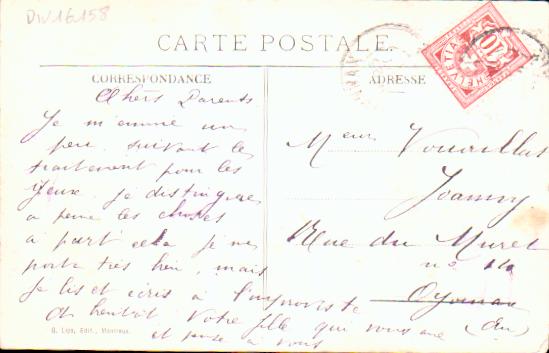 DIV16.158
CARTE POSTALE.
HELVETIA
10
CORRESPONDANCE
ADRESSE
Chers Parents
Je m'ennuie un
peu. suivant les
traitement pour les
Yeux. Je distingue
a peine les choses
à part cela je me
porte très bien, mais
Je lis et écris à l'improviste
A bientôt Votre fille qui vous aime
et pense à vous
Mr
Joanny
Rue du Muret
no
Oyonnax
(Ain)
G. Lips, Édit., Montreux.